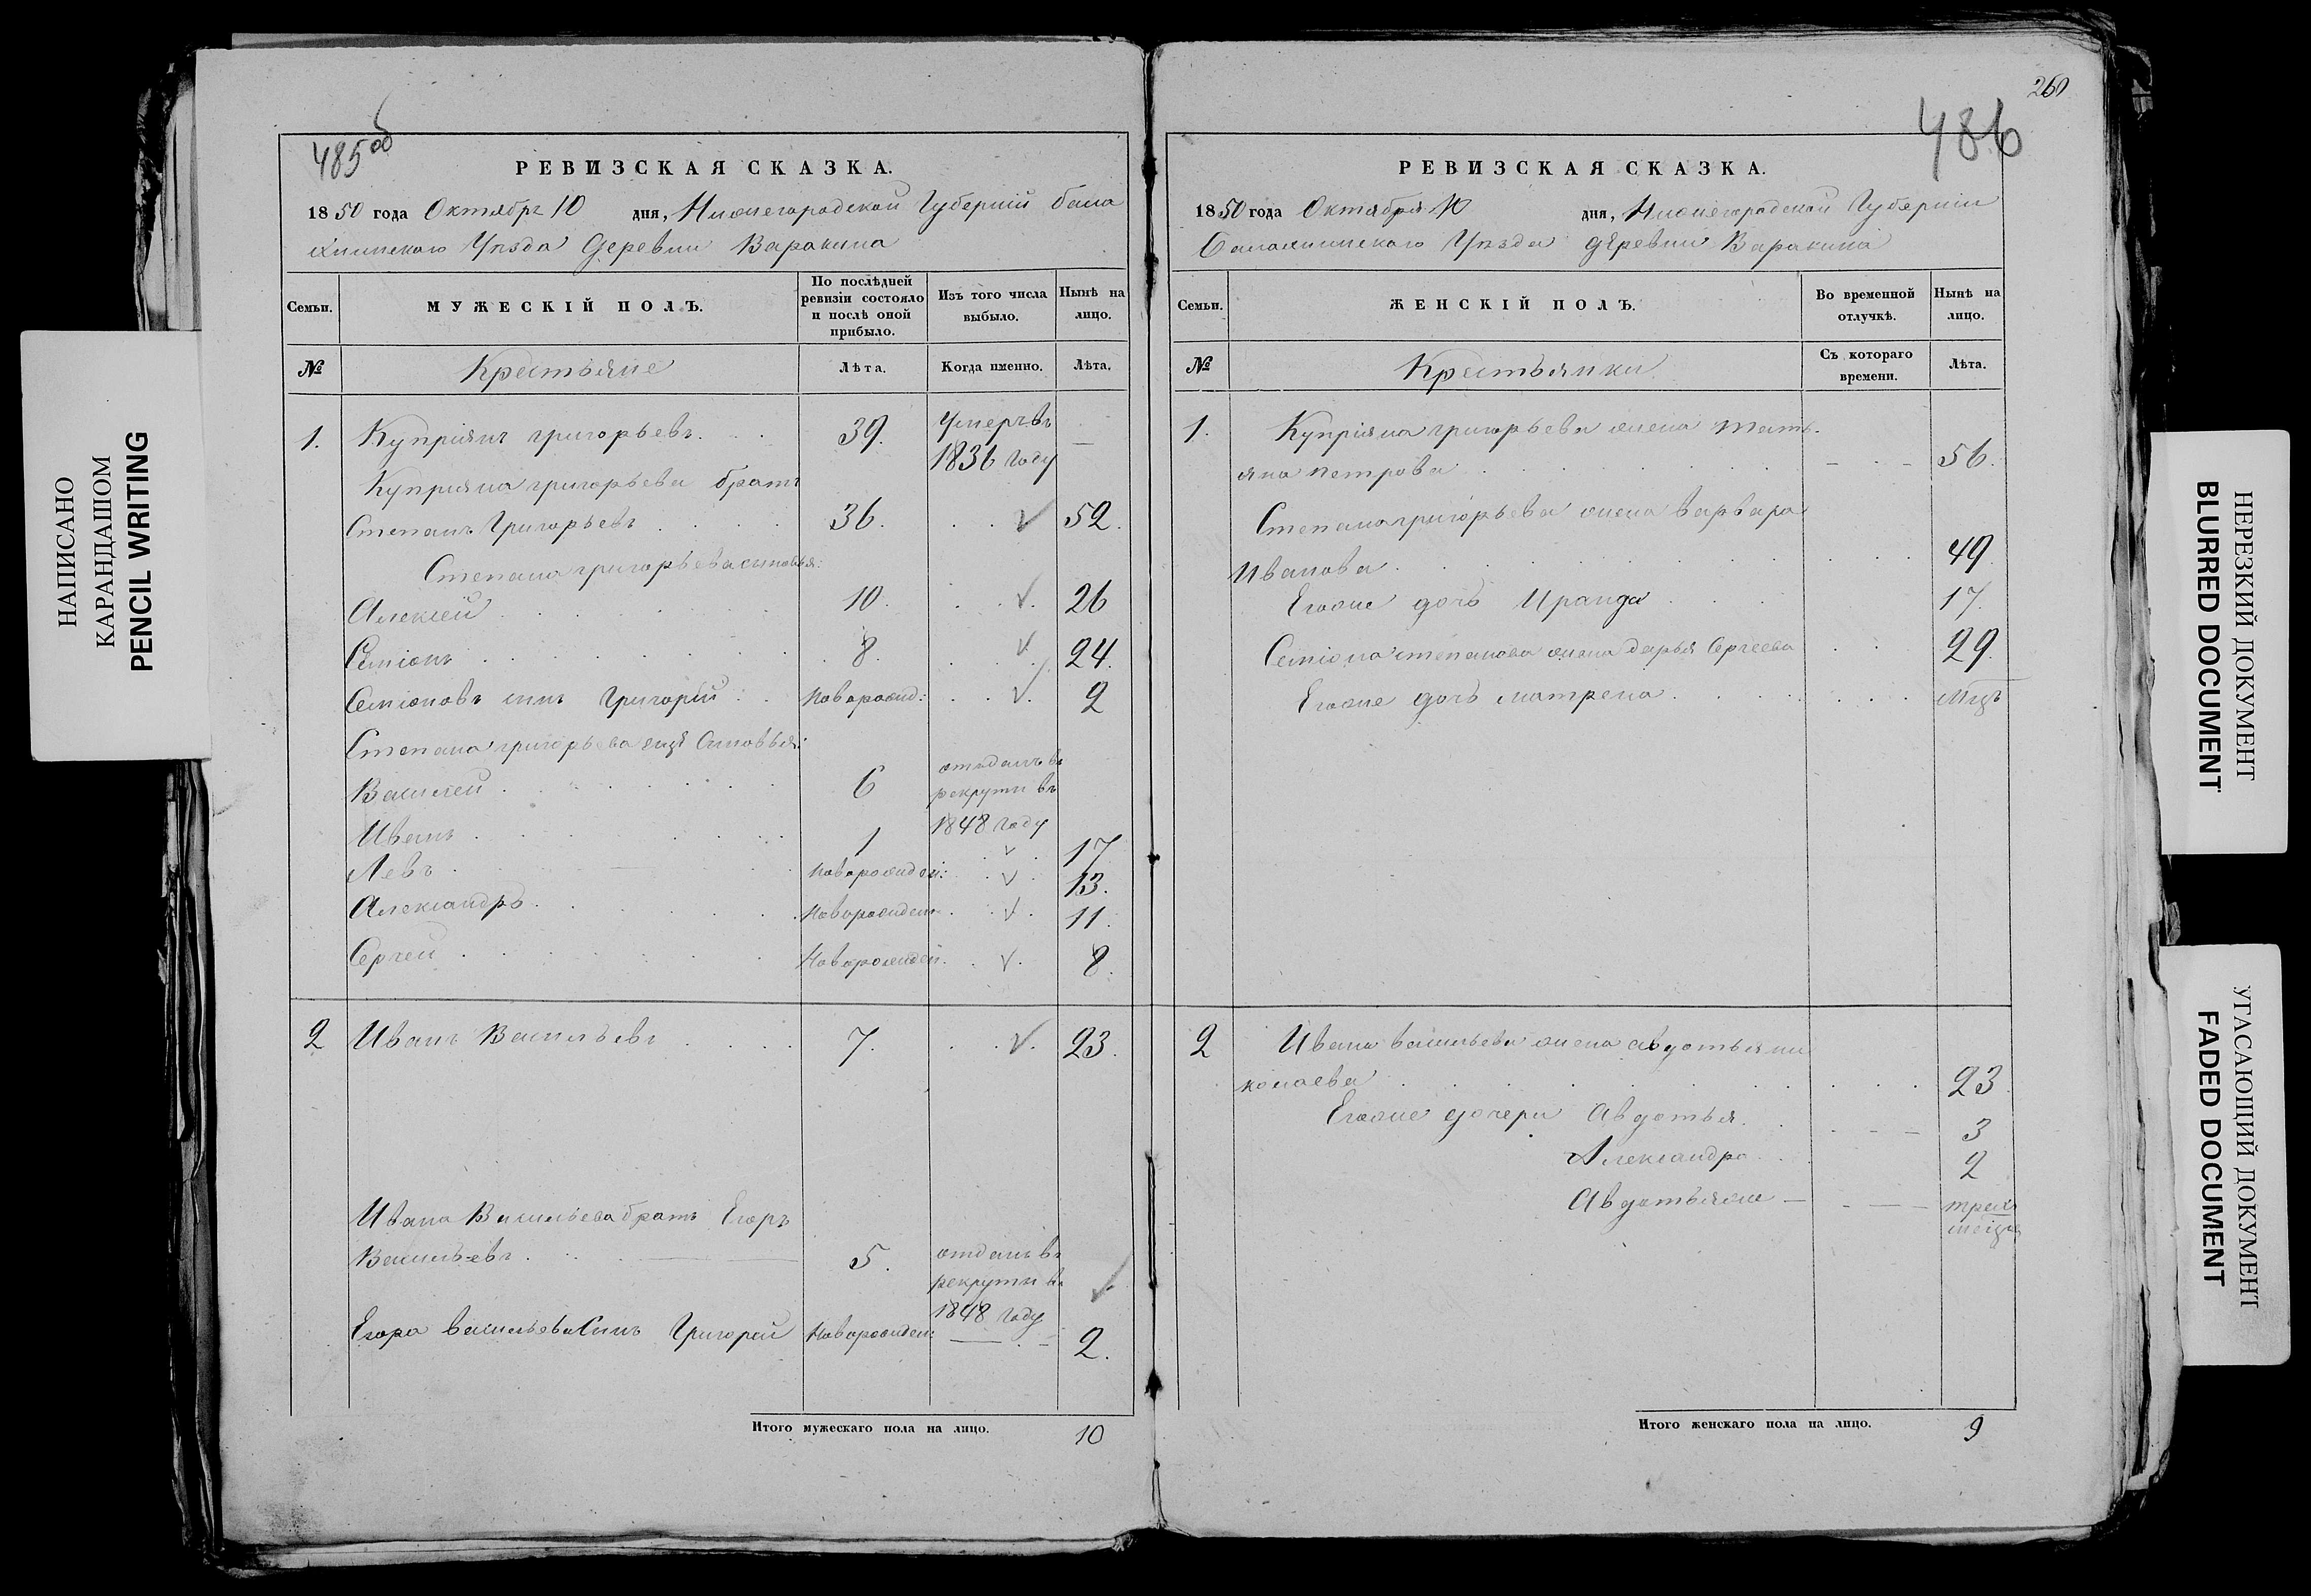 485 об
РЕВИЗСКАЯ СКАЗКА.
1850 года Октября 10 дня, Нижегородской Губернии Бала
хнинского Уезда Деревни Варакина
Семьи.
МУЖЕСКІЙ ПОЛЪ.
По послѣдней ревизіи состояло и послѣ оной прибыло.
Изъ того числа выбыло.
Нынѣ на лицо.
№
Крестьяне
Лѣта.
Когда именно.
Лѣта.
1. Купріянъ григорьевъ. 39. Умеръ въ
1836 году —
Куприяна григорьева братъ
Степанъ Григорьевъ 36. 52.
Степана григорьева сыновья:
Алексей 10. 26
Семіонъ 8. 24.
Семіоновъ сынъ Григорій Новорожд: 2
Степана григорьева ещё Сыновья:
Василей 6 отъданъ въ
рекруты въ
1848 году
Иванъ 1 17
Левъ Новорожден: 13.
Александръ Новорожден 11.
Сергеи Новорожден. 8.
2 Иванъ Васильевъ 7. 23.
Ивана Васильева братъ Егоръ
Васильевъ 5. отданъ въ
рекруты въ
1848 году
Егора васильева Сынъ Григорей Новорожден: 2.
Итого мужескаго пола на лицо. 10
260
486
РЕВИЗСКАЯ СКАЗКА.
1850 года Октября 10 дня, Нижегородской Губернии
Балахнинского Уезда деревни Варакина
Семьи.
ЖЕНСКІЙ ПОЛЪ.
Во временной отлучкѣ.
Нынѣ на лицо.
№
Крестьянки
Съ котораго времени.
Лѣта.
1. Купріяна григорьева жена тать.
яна петрова 56.
Степана григорьева жена варвара
Иванова 49.
Егоже дочь Ираида 17.
Семіона степанова жена дарья Сергеева 29.
Егоже дочь матрена мцъ
2 Ивана васильева жена авдотья ни
колаева 23.
Егоже дочери Авдотья 3
Александра 2
Авдотьяже трех
месце
Итого женскаго пола на лицо. 9
НАПИСАНО
КАРАНДАШОМ
PENCIL WRITING
НЕРЕЗКИЙ ДОКУМЕНТ
BLURRED DOCUMENT
УГАСАЮЩИЙ ДОКУМЕНТ
FADED DOCUMENT